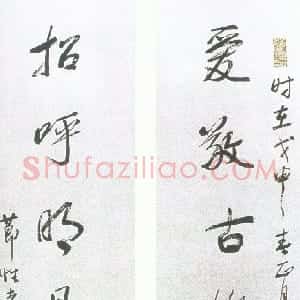 时在戊申之春正月
爱敬古
招呼明月
节性
Shufaziliao.com